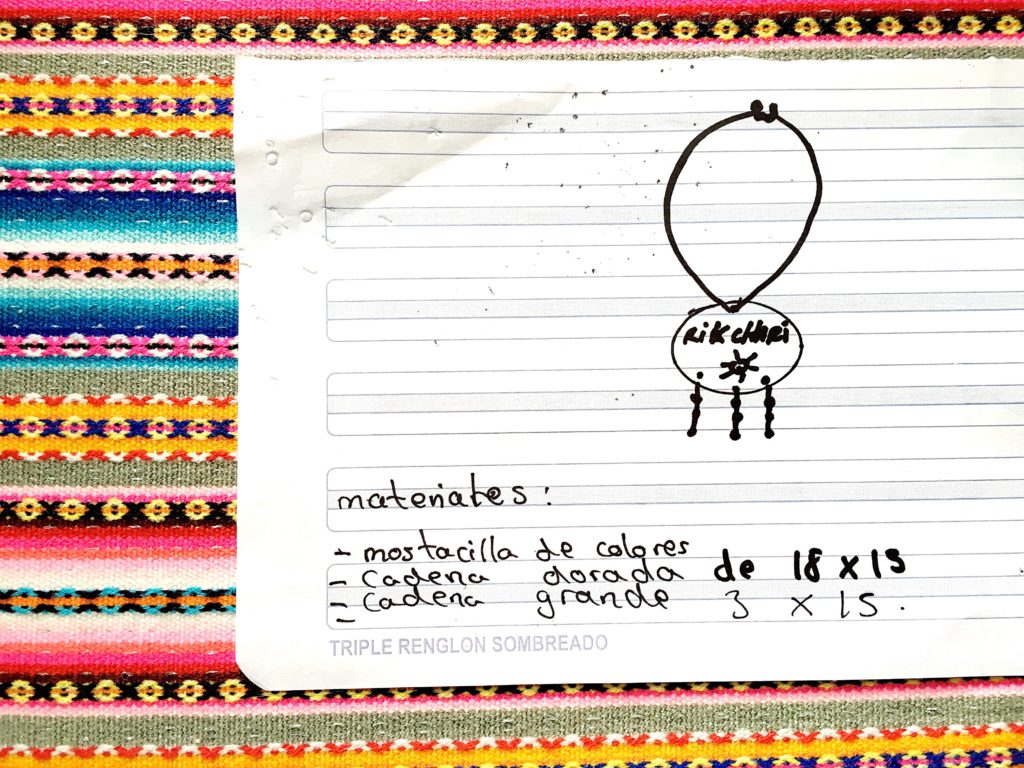 Rikchari
materiales:
- mostacilla de colores
- cadena dorada de 18 x 15
- cadena grande 3 x 15.
-
TRIPLE RENGLON SOMBREADO